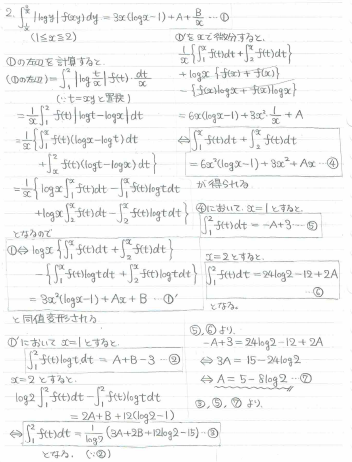 2. ∫_{1/x}^{2/x} |log y| f(xy) dy = 3x(log x - 1) + A + B/x …①
(1≦x≦2)
①の左辺を計算すると、
(①の左辺) = ∫_1^2 |log t/x| f(t)・dt/x
(∵ t=xyと置換)
= 1/x ∫_1^2 f(t) |log t - log x| dt
= 1/x { ∫_1^x f(t)(log x - log t) dt
+ ∫_x^2 f(t)(log t - log x) dt }
= 1/x { log x ∫_1^x f(t)dt - ∫_1^x f(t) log t dt
+ log x ∫_2^x f(t)dt - ∫_2^x f(t) log t dt }
となるので
①⇔ log x { ∫_1^x f(t)dt + ∫_2^x f(t)dt }
- { ∫_1^x f(t) log t dt + ∫_2^x f(t) log t dt }
= 3x²(log x - 1) + Ax + B …①'
と同値変形される
①'において x=1とすると、
∫_1^2 f(t) log t dt = A + B - 3 …②
x=2とすると、
log2 ∫_1^2 f(t)dt - ∫_1^2 f(t) log t dt
= 2A + B + 12(log2 - 1)
⇔ ∫_1^2 f(t)dt = 1/log2 (3A + 2B + 12log2 - 15) …③
となる. (∵②)
①'をxで微分すると、
1/x { ∫_1^x f(t)dt + ∫_2^x f(t)dt }
+ log x { f(x) + f(x) }
- { f(x) log x + f(x) log x }
= 6x(log x - 1) + 3x²・1/x + A
⇔ ∫_1^x f(t)dt + ∫_2^x f(t)dt
= 6x²(log x - 1) + 3x² + Ax …④
が得られる
④において x=1とすると、
∫_1^2 f(t)dt = -A + 3 …⑤
x=2とすると、
∫_1^2 f(t)dt = 24log2 - 12 + 2A
…⑥
となる.
⑤,⑥より、
-A + 3 = 24log2 - 12 + 2A
⇔ 3A = 15 - 24log2
⇔ A = 5 - 8log2 …⑦
③,⑤,⑦より.